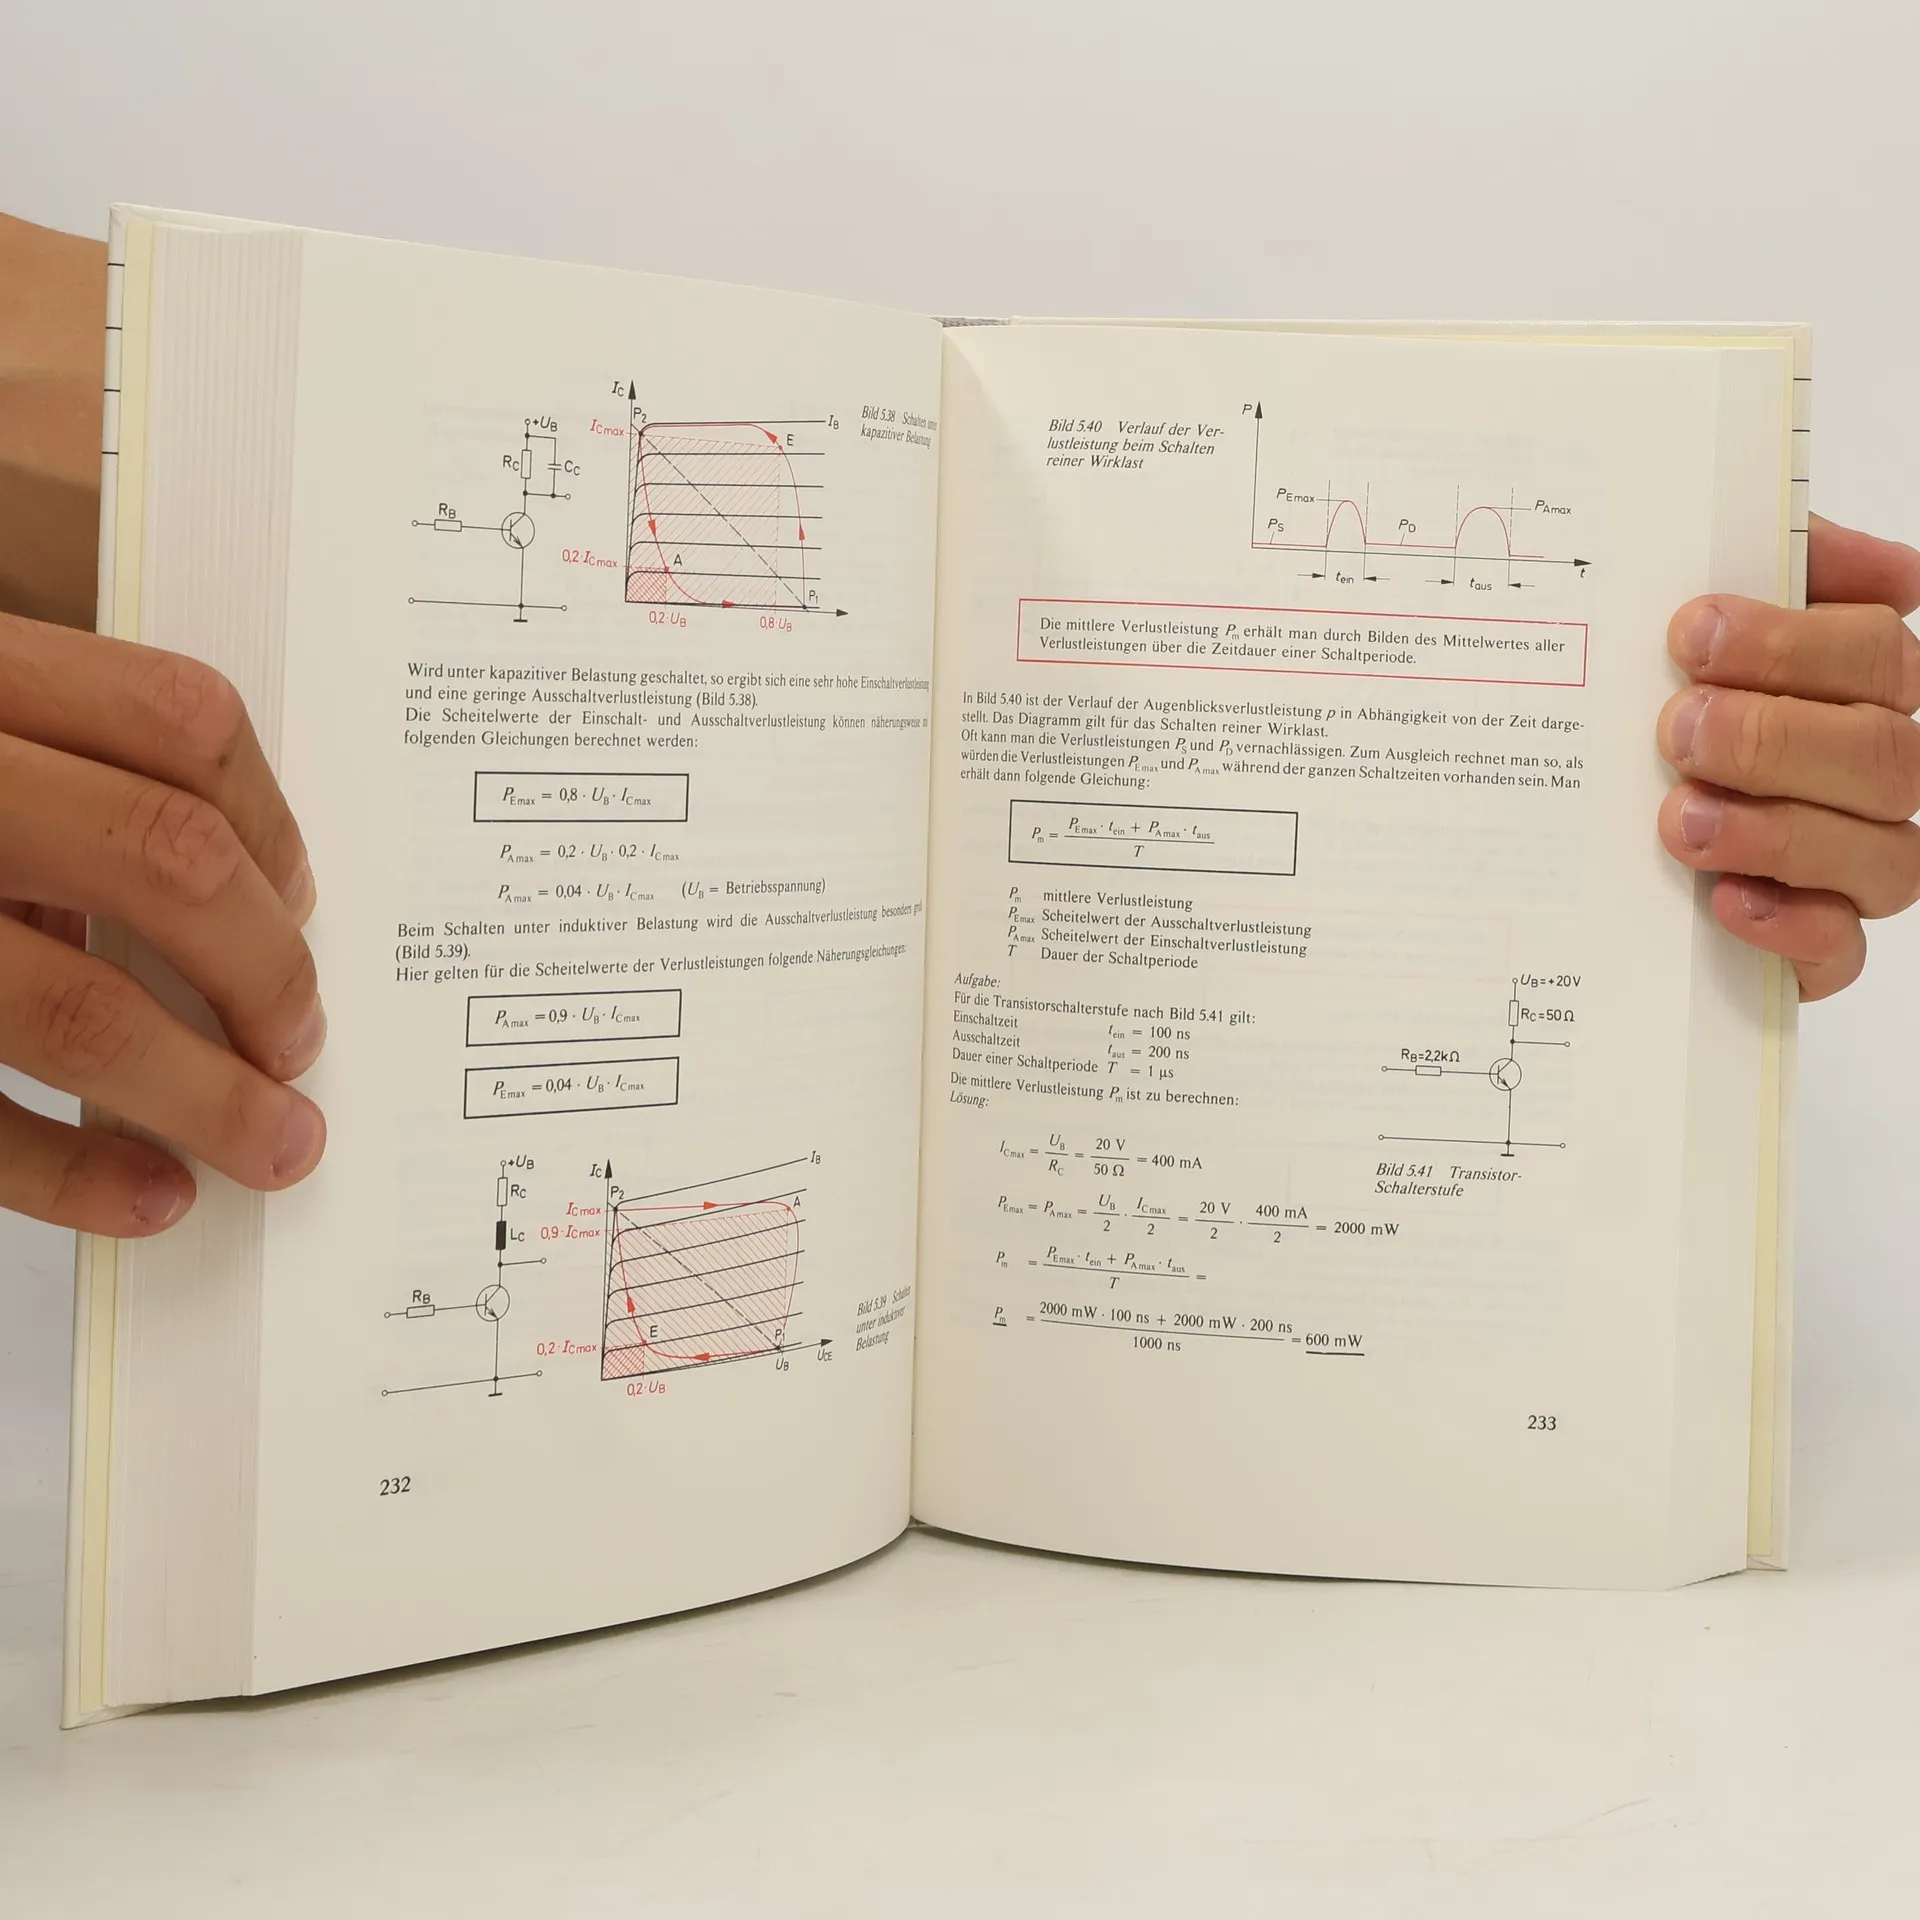 Bild 5.38 Schalten unter
kapazitiver Belastung
+UB
RC
CC
RB
IC
P2
ICmax
IB
E
0,2·ICmax
A
P1
0,2·UB
0,8·UB
Wird unter kapazitiver Belastung geschaltet, so ergibt sich eine sehr hohe Einschaltverlustleistung
und eine geringe Ausschaltverlustleistung (Bild 5.38).
Die Scheitelwerte der Einschalt- und Ausschaltverlustleistung können näherungsweise
folgenden Gleichungen berechnet werden:
PEmax = 0,8 · UB · ICmax
PAmax = 0,2 · UB · 0,2 · ICmax
PAmax = 0,04 · UB · ICmax (UB = Betriebsspannung)
Beim Schalten unter induktiver Belastung wird die Ausschaltverlustleistung besonders groß
(Bild 5.39).
Hier gelten für die Scheitelwerte der Verlustleistungen folgende Näherungsgleichungen:
PAmax = 0,9 · UB · ICmax
PEmax = 0,04 · UB · ICmax
+UB
RC
LC
RB
IC
P2
IB
ICmax
A
0,9·ICmax
E
0,2·ICmax
P1
UB
UCE
0,2·UB
Bild 5.39 Schalten
unter induktiver
Belastung
232
Bild 5.40 Verlauf der Ver-
lustleistung beim Schalten
reiner Wirklast
P
PEmax
PAmax
PS
PD
t
tein
taus
Die mittlere Verlustleistung Pm erhält man durch Bilden des Mittelwertes aller
Verlustleistungen über die Zeitdauer einer Schaltperiode.
In Bild 5.40 ist der Verlauf der Augenblicksverlustleistung p in Abhängigkeit von der Zeit darge-
stellt. Das Diagramm gilt für das Schalten reiner Wirklast.
Oft kann man die Verlustleistungen PS und PD vernachlässigen. Zum Ausgleich rechnet man so, als
würden die Verlustleistungen PEmax und PAmax während der ganzen Schaltzeiten vorhanden sein. Man
erhält dann folgende Gleichung:
Pm = PEmax · tein + PAmax · taus
T
Pm mittlere Verlustleistung
PEmax Scheitelwert der Ausschaltverlustleistung
PAmax Scheitelwert der Einschaltverlustleistung
T Dauer der Schaltperiode
Aufgabe:
Für die Transistorschalterstufe nach Bild 5.41 gilt:
Einschaltzeit tein = 100 ns
Ausschaltzeit taus = 200 ns
Dauer einer Schaltperiode T = 1 µs
Die mittlere Verlustleistung Pm ist zu berechnen:
Lösung:
UB=+20V
RC=50Ω
RB=2,2kΩ
Bild 5.41 Transistor-
Schalterstufe
ICmax = UB/RC = 20 V/50 Ω = 400 mA
PEmax = PAmax = UB/2 · ICmax/2 = 20 V/2 · 400 mA/2 = 2000 mW
Pm = PEmax · tein + PAmax · taus =
T
Pm = 2000 mW · 100 ns + 2000 mW · 200 ns = 600 mW
1000 ns
233